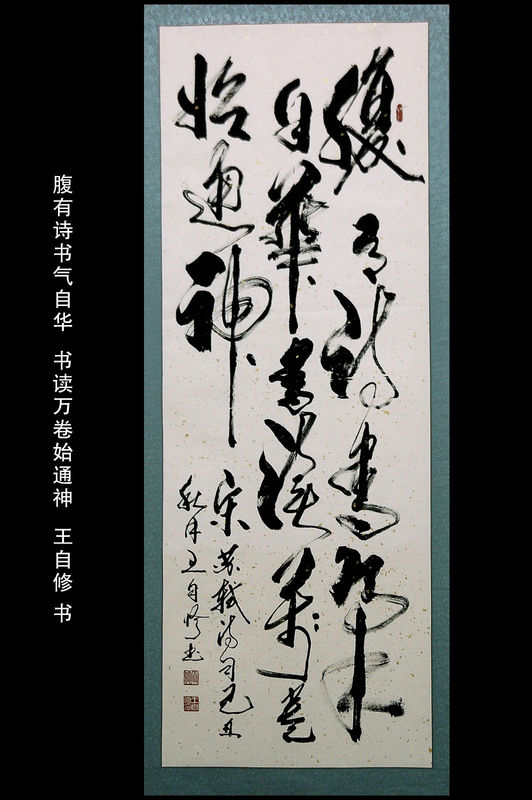 腹有詩書氣
自華書讀萬卷
始通神
宋苏軾詩句己丑
秋月王自修书
腹有诗书气自华 书读万卷始通神 王自修 书